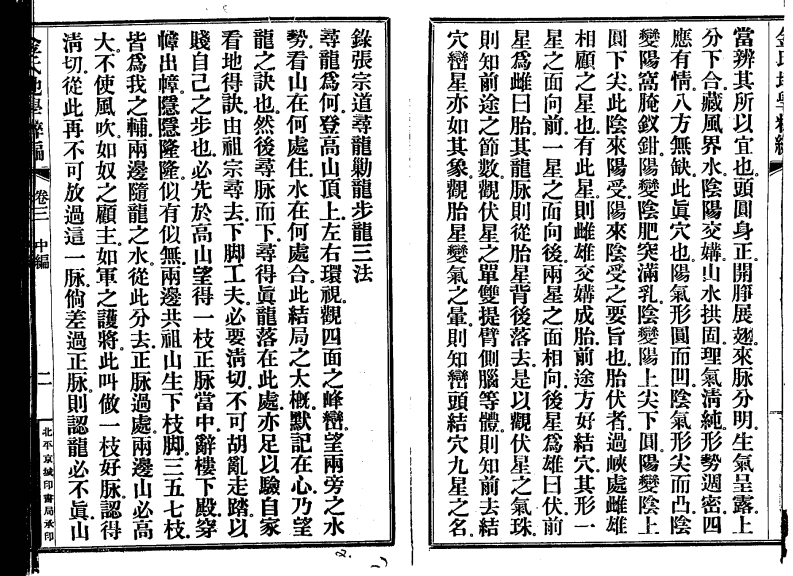 當辨其所以宜也頭圓身正開睜展翅來脉分明生氣呈露上
分下合藏風界水陰陽交媾山水拱固理氣清純形勢週密四
應有情八方無缺此眞穴也陽氣形圓而凹陰氣形尖而凸陰
變陽窩腌釵鉗陽變陰肥突滿乳陰變陽上尖下圓陽變陰上
圓下尖此陰來陽受陽來陰受之要旨也胎伏者過峽處雌雄
相顧之星也有此星則雌雄交媾成胎前途方好結穴其形一
星之面向前一星之面向後兩星之面相向後星爲雄曰伏前
星爲雌曰胎其龍脉則從胎星背後落去是以觀伏星之氣珠
則知前途之節數觀伏星之單雙提臂側腦等體則知前去結
穴巒星亦如其象觀胎星變氣之暈則知巒頭結穴九星之名
錄張宗道尋龍勦龍步龍三法
尋龍爲何登高山頂上左右環視觀四面之峰巒望兩旁之水
勢看山在何處住水在何處合此結局之大概默記在心乃望
龍之訣也然後尋脉而下尋得眞龍落在此處亦足以驗自家
看地得訣由祖宗尋去下脚工夫必要淸切不可胡亂走踏以
賤自己之步也必先於高山望得一枝正脉當中辭樓下殿穿
幛出幛隱隱隆隆似有似無兩邊共祖山生下枝脚三五七枝
皆爲我之輔兩邊隨龍之水從此分去正脉過處兩邊山必高
大不使風吹如奴之顧主如軍之護將此叫做一枝好脉認得
淸切從此再不可放過這一脉倘差過正脉則認龍必不眞山
卷三
中編
二
北平京城印書局承印
2.